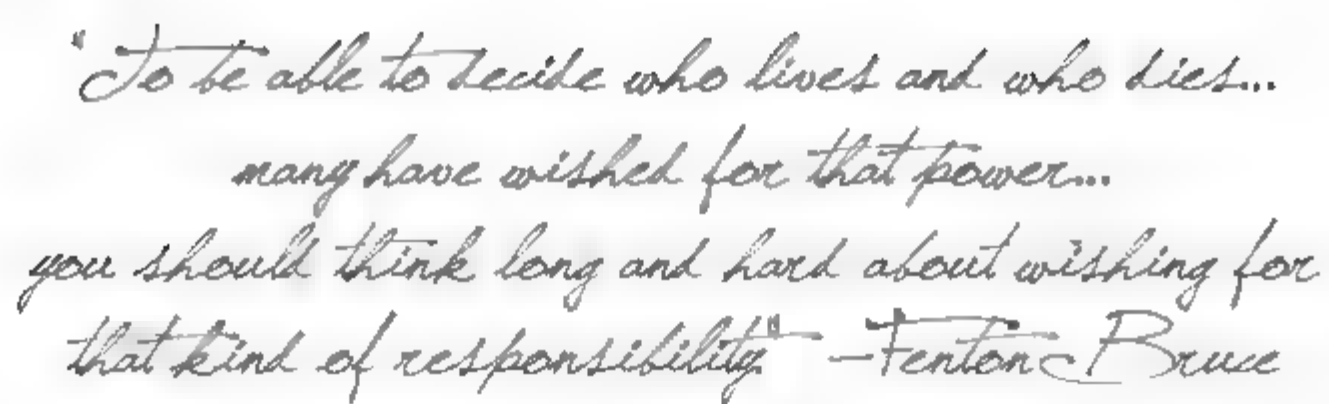 "To be able to decide who lives and who dies...
many have wished for that power...
you should think long and hard about wishing for
that kind of responsibility" -Fenton Bruce